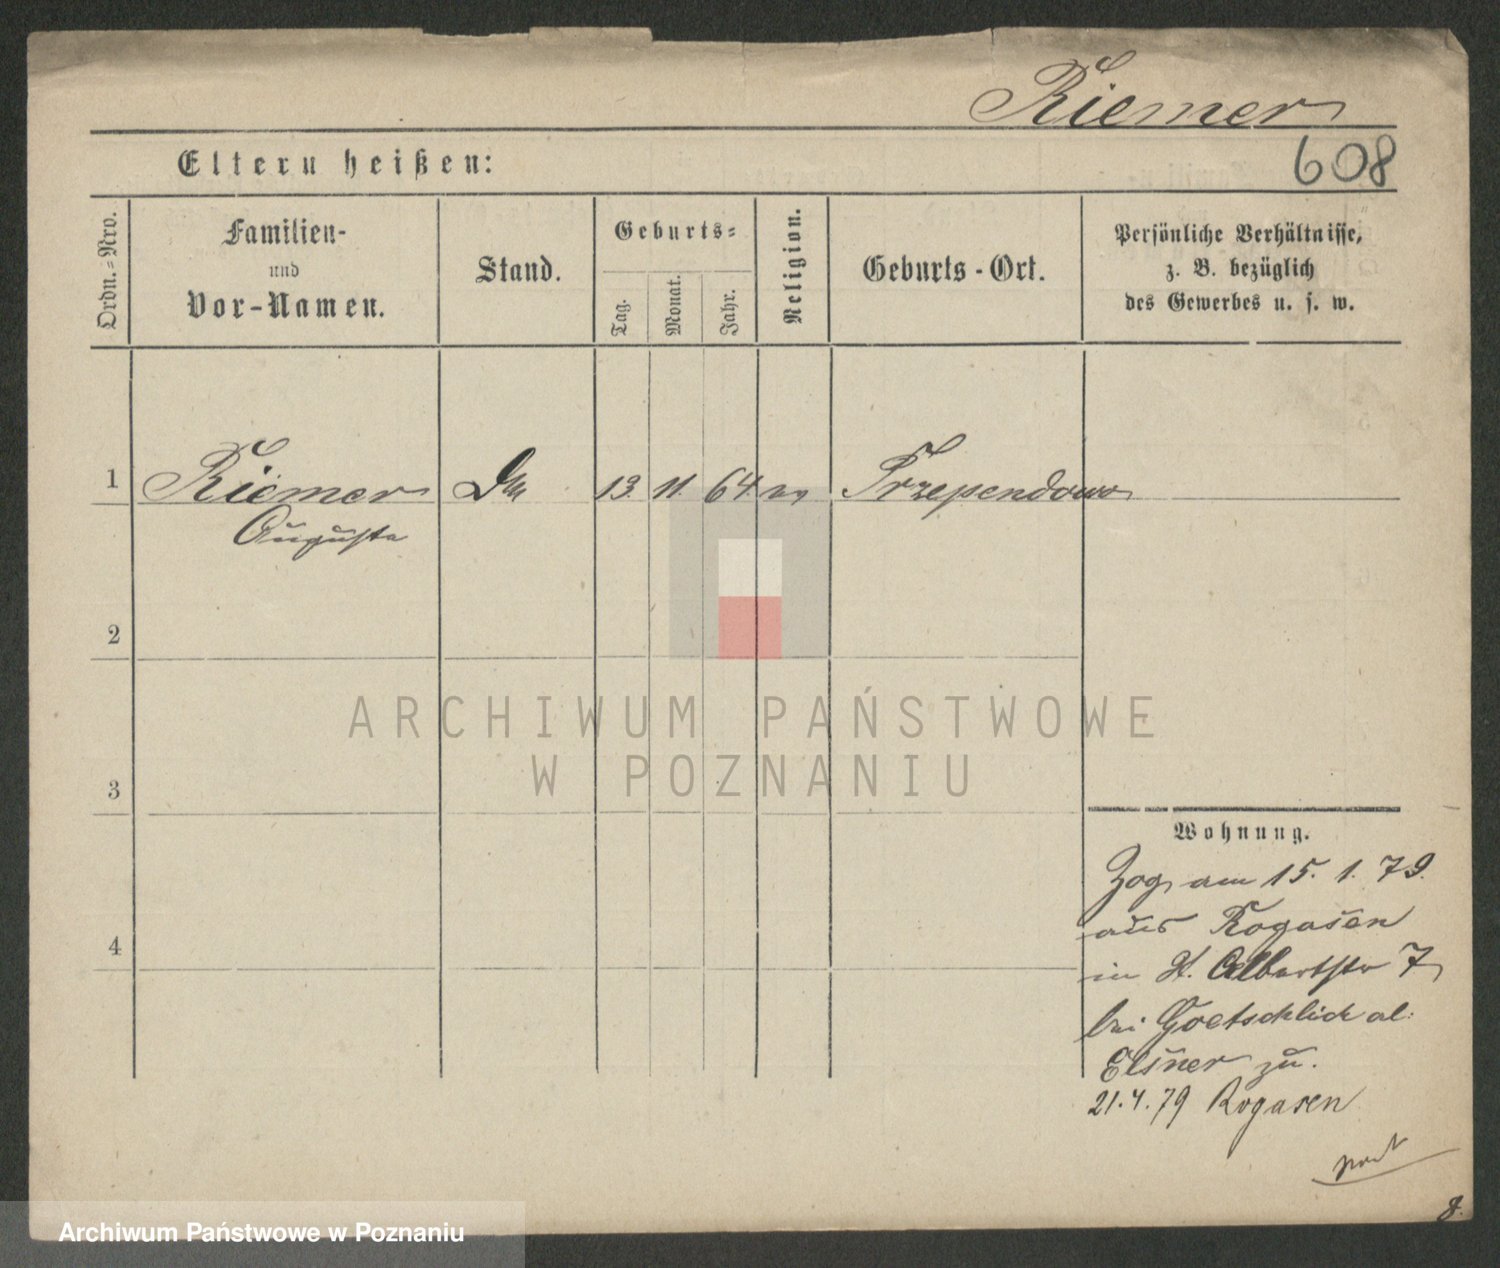 Riemer
608
Eltern heißen:
Ordn.=Nro.
Familien-
und
Vor-Namen.
Stand.
Geburts=
Tag.
Monat.
Jahr.
Religion.
Geburts-Ort.
Persönliche Verhältnisse,
z. B. bezüglich
des Gewerbes u. s. w.
1 Riemer 13 11. 64. ev Trzependowo
Auguste
2
3
4
Wohnung.
Zog am 15. 1. 79.
aus Rogasen
in St. Adalbertstr 7
bei Goetschlich al:
Elsner zu.
21.4.79 Rogasen
8.
ARCHIWUM PAŃSTWOWE
W POZNANIU
Archiwum Państwowe w Poznaniu